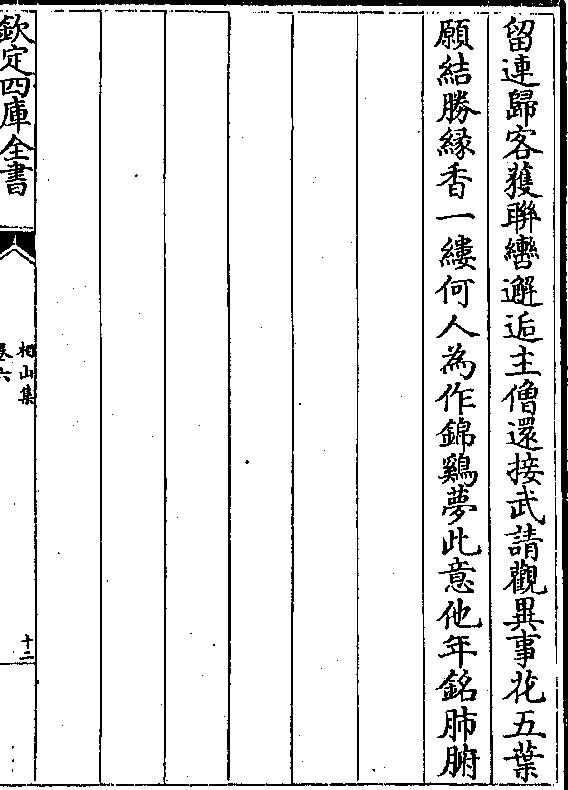 留連歸客獲聯轡邂逅主僧還接武請觀異事花五葉
願結勝緣香一縷何人為作錦鷄夢此意他年銘肺腑
欽定四庫全書
山集
卷六
十二